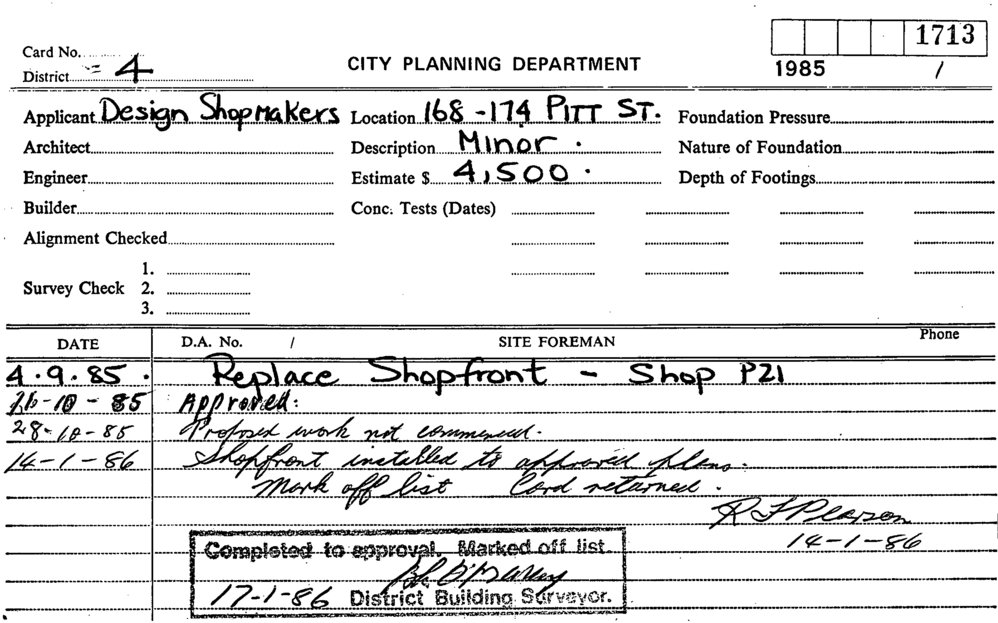 1713
Card No.
1985 /
District 4
CITY PLANNING DEPARTMENT
Applicant Design Shopmakers Location 168-174 PITT ST. Foundation Pressure
Architect Description Minor. Nature of Foundation
Engineer Estimate $ 4,500. Depth of Footings
Builder Conc. Tests (Dates)
Alignment Checked
1.
Survey Check 2.
3.
DATE D.A. No. / SITE FOREMAN Phone
4.9.85. Replace Shopfront - Shop P21
-10-85 Approved:
28-10-85 Proposed work not commenced.
14-1-86 Shopfront installed to approved plans.
Mark off list Card returned.
R F Pearson
14-1-86
Completed to approval. Marked off list.
17-1-86 District Building Surveyor.